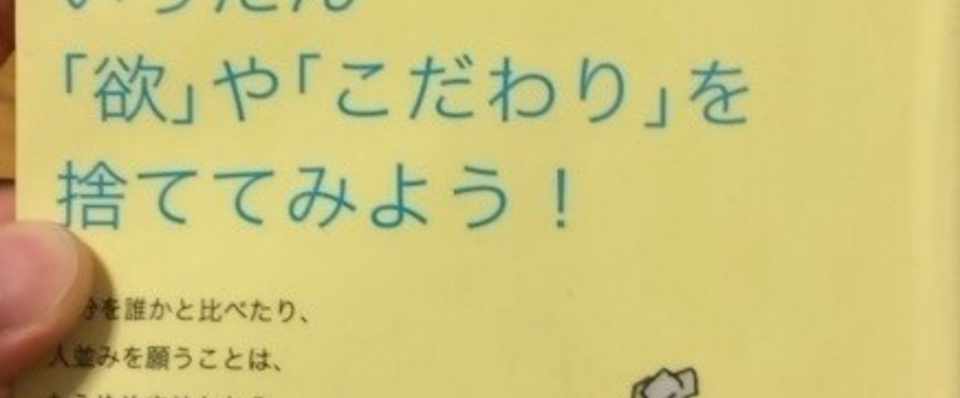 いったん
「欲」や「こだわり」を
捨ててみよう！
分を誰かと比べたり、
人並みを願うことは、